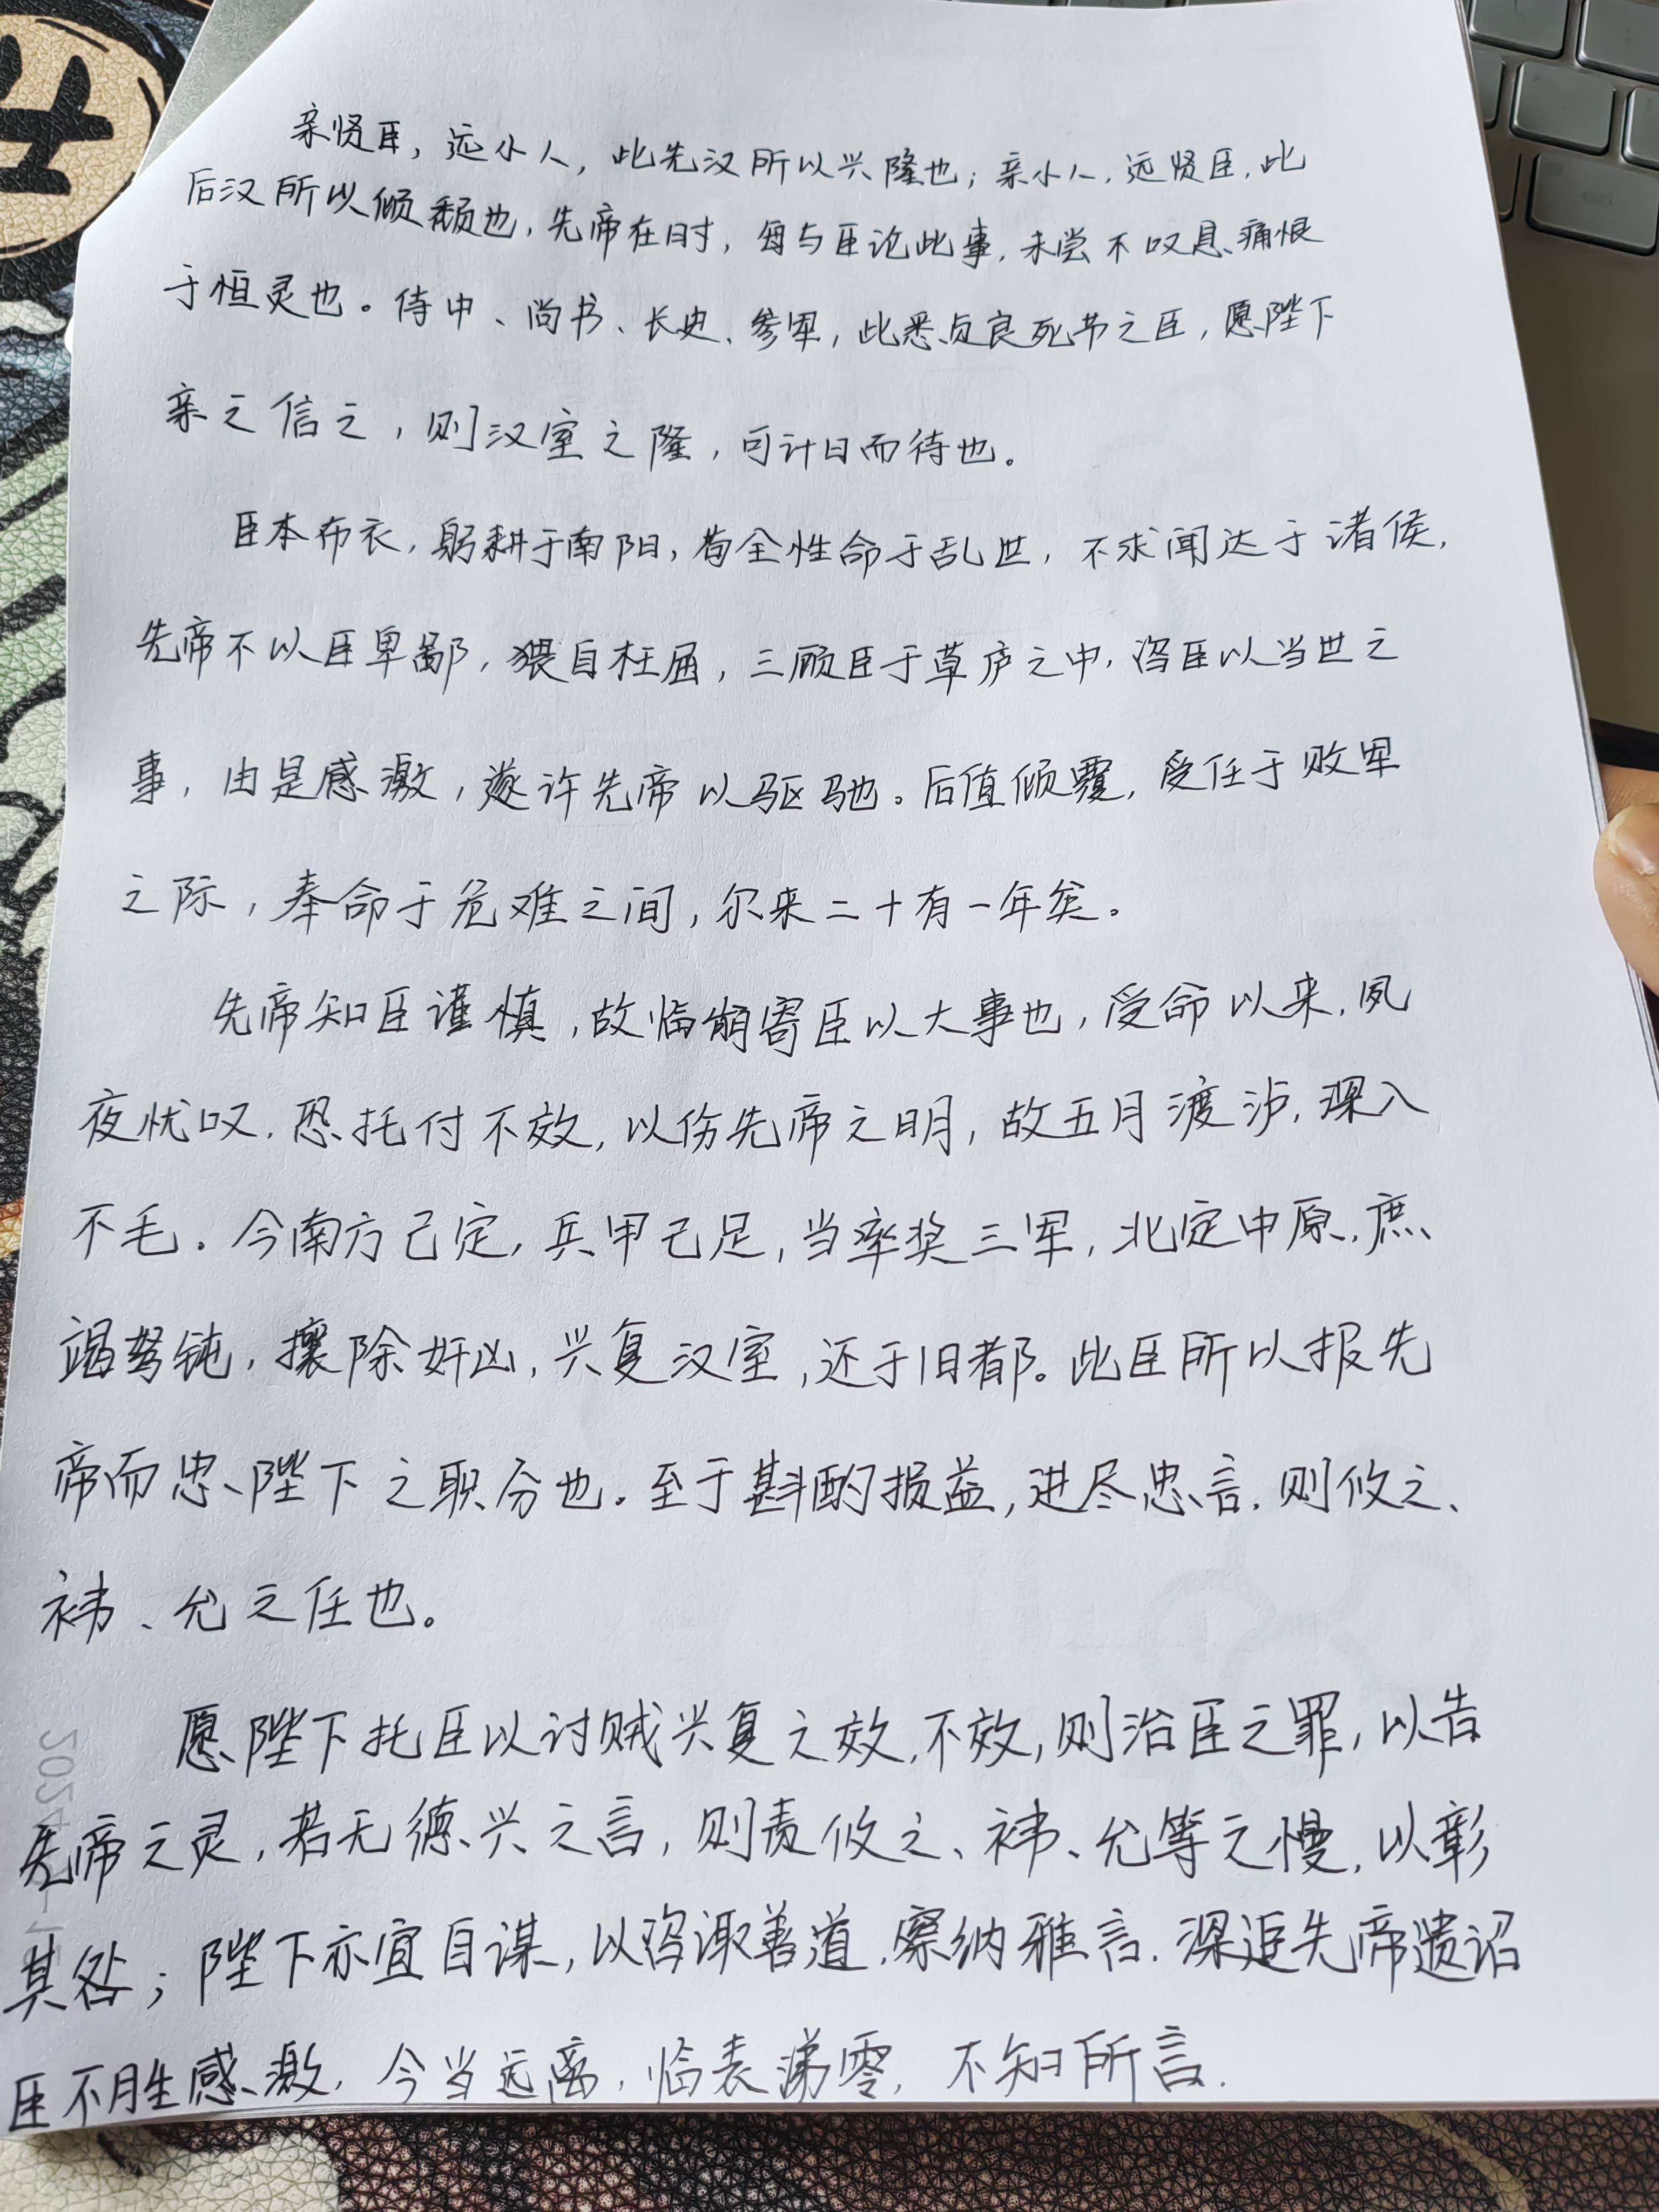 亲贤臣，远小人，此先汉所以兴隆也；亲小人，远贤臣，此
后汉所以倾颓也，先帝在时，每与臣论此事，未尝不叹息痛恨
于恒灵也。侍中、尚书、长史、参军，此悉贞良死节之臣，愿陛下
亲之信之，则汉室之隆，可计日而待也。
臣本布衣，躬耕于南阳，苟全性命于乱世，不求闻达于诸侯，
先帝不以臣卑鄙，猥自枉屈，三顾臣于草庐之中，咨臣以当世之
事，由是感激，遂许先帝以驱驰。后值倾覆，受任于败军
之际，奉命于危难之间，尔来二十有一年矣。
先帝知臣谨慎，故临崩寄臣以大事也，受命以来，夙
夜忧叹，恐托付不效，以伤先帝之明，故五月渡泸，深入
不毛。今南方已定，兵甲已足，当率奖三军，北定中原，庶
竭驽钝，攘除奸凶，兴复汉室，还于旧都。此臣所以报先
帝而忠陛下之职分也。至于斟酌损益，进尽忠言，则攸之、
袆、允之任也。
愿陛下托臣以讨贼兴复之效，不效，则治臣之罪，以告
先帝之灵，若无德兴之言，则责攸之、袆、允等之慢，以彰
其咎；陛下亦宜自谋，以咨诹善道，察纳雅言，深追先帝遗诏
臣不胜感激，今当远离，临表涕零，不知所言.